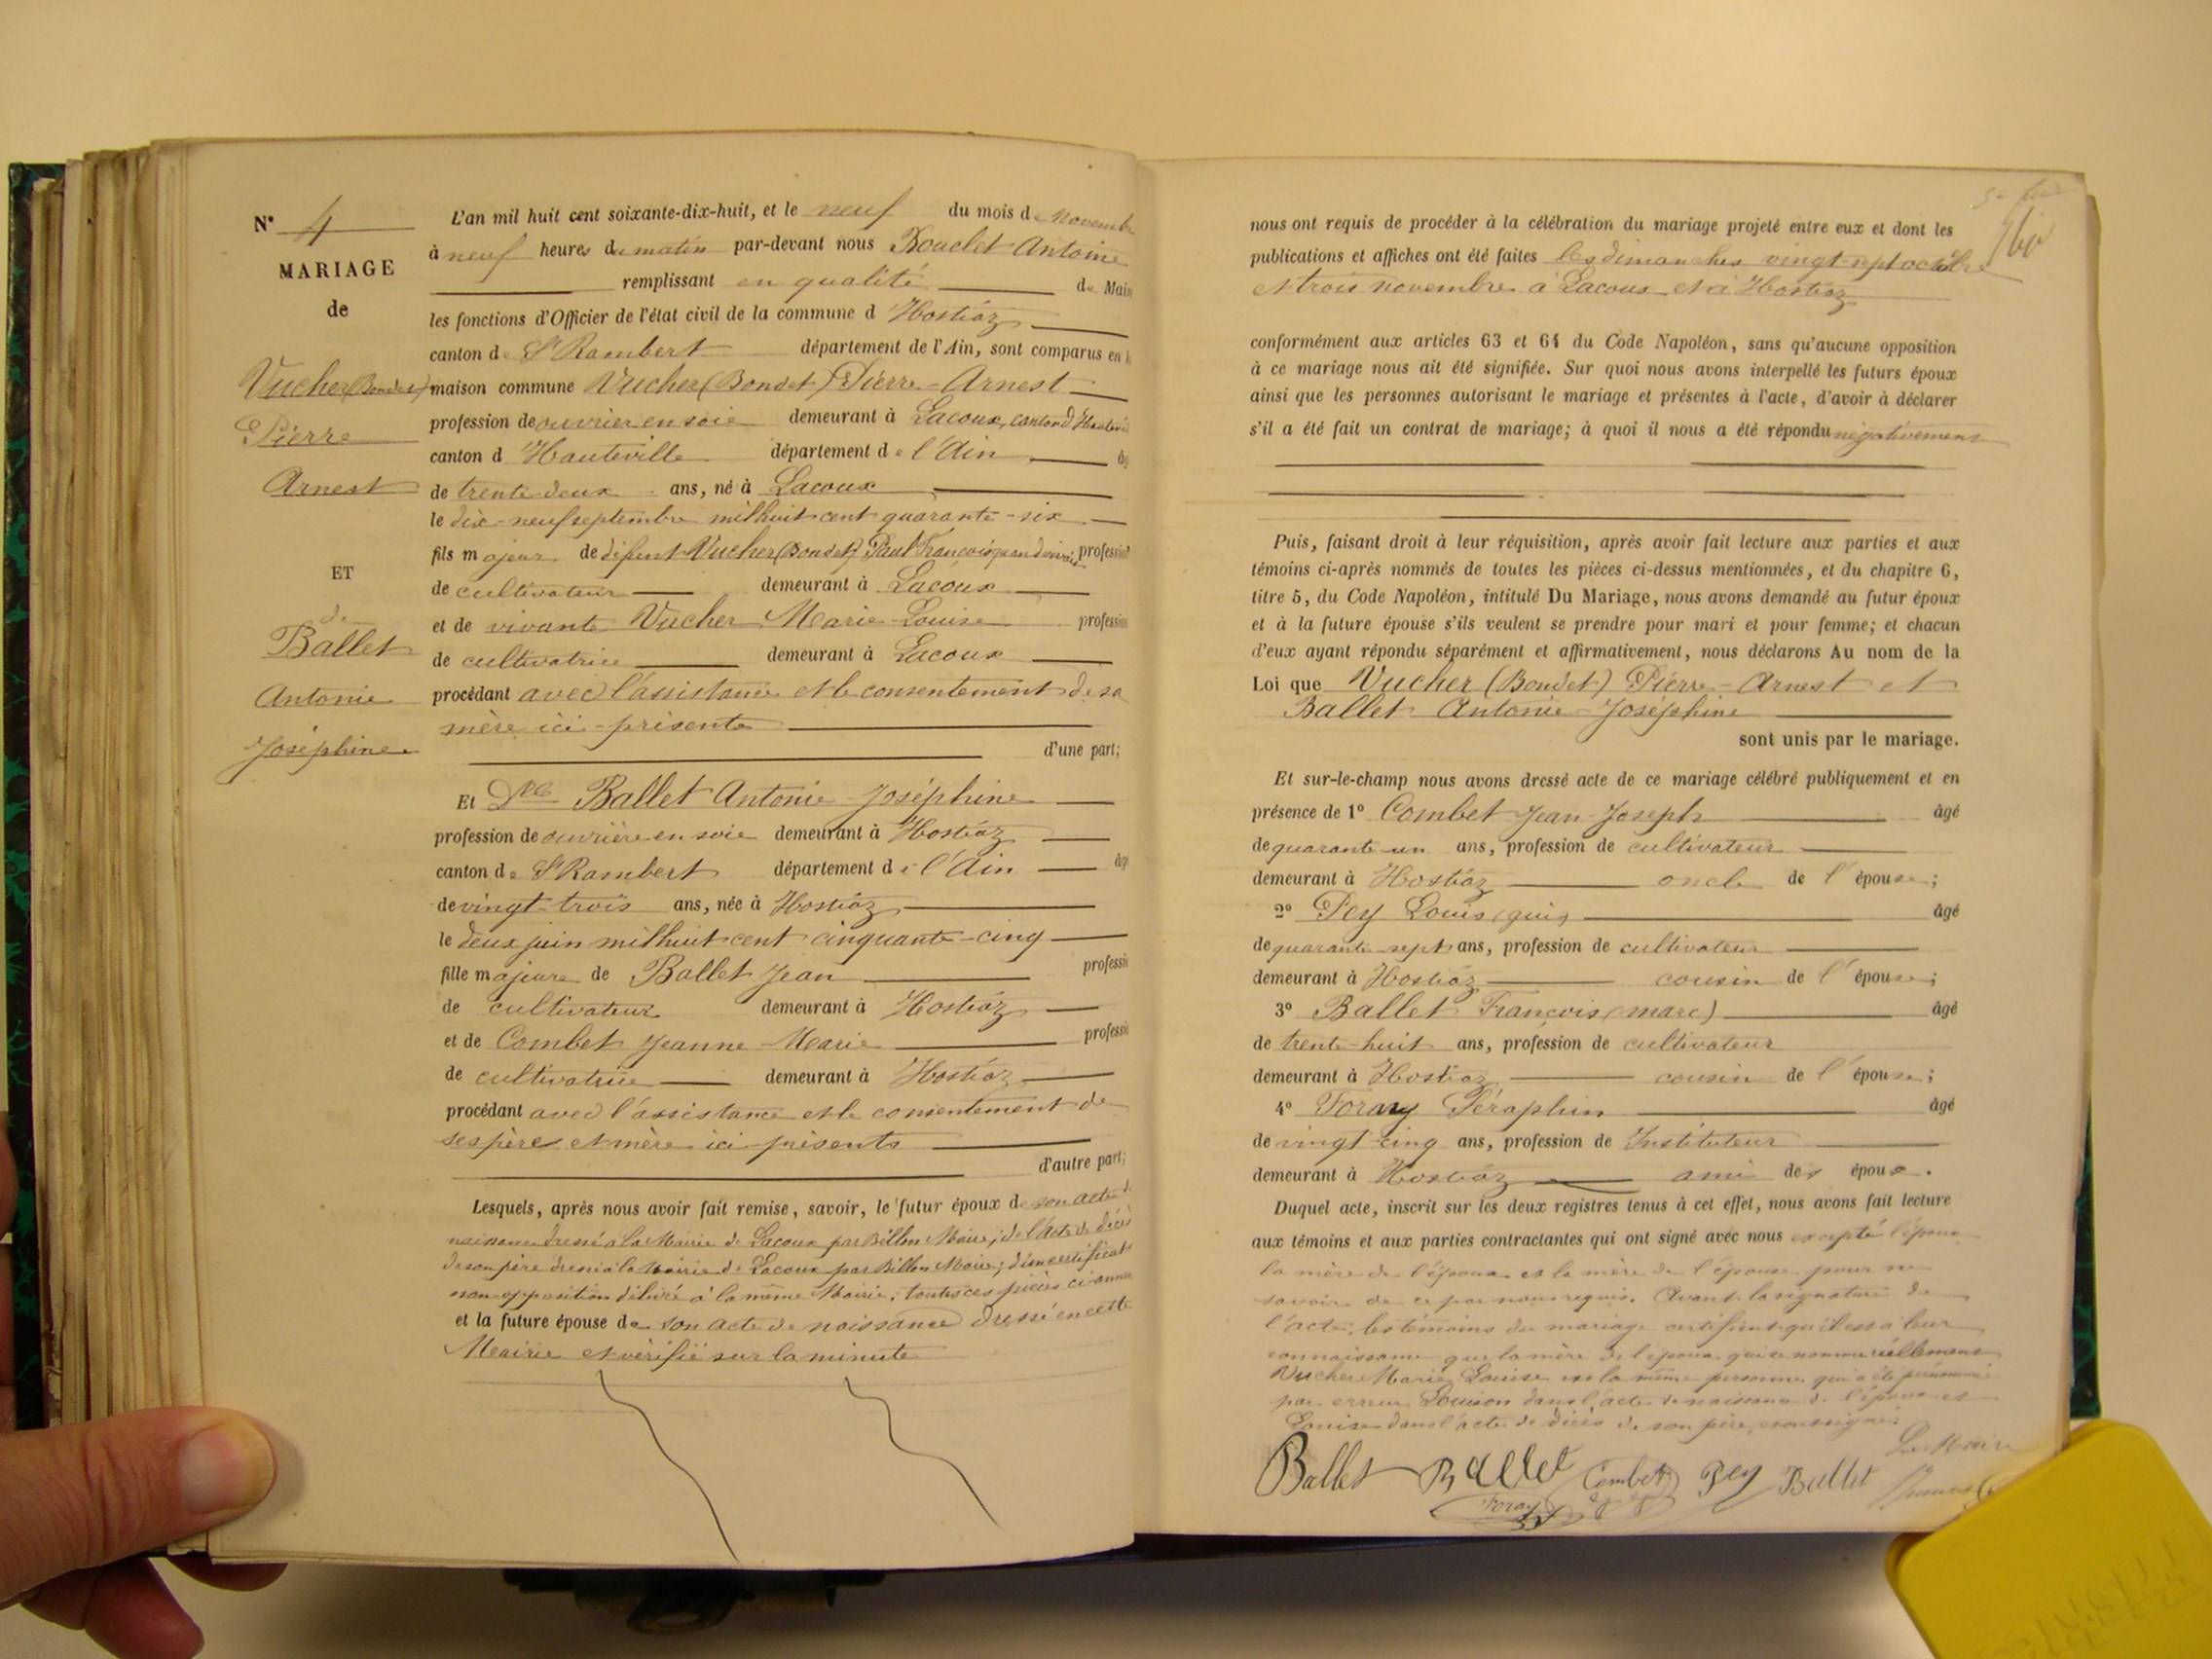 N° 4
MARIAGE
de
Vucher (Bondet)
Pierre
Arnest
ET
de
Ballet
Antonie
Joséphine
L'an mil huit cent soixante-dix-huit, et le neuf du mois de novembre
à neuf heures du matin par-devant nous Bouclet Antoine
remplissant en qualité de Maire
les fonctions d'Officier de l'état civil de la commune d Hostiaz
canton de St Rambert département de l'Ain, sont comparus en la
maison commune Vucher (Bondet) Pierre-Arnest
profession de ouvrier en soie demeurant à Lacoux, canton d'Hauteville
canton d'Hauteville département de l'Ain âgé
de trente-deux ans, né à Lacoux
le dix-neuf septembre mil huit cent quarante-six
fils majeur de défunt Vucher (Bondet) Paul François quand vivait profession
de cultivateur demeurant à Lacoux
et de vivante Vucher Marie-Louise profession
de cultivatrice demeurant à Lacoux
procédant avec l'assistance et le consentement de sa
mère ici-présente
d'une part;
Et Dlle Ballet Antonie-Joséphine
profession de ouvrière en soie demeurant à Hostiaz
canton de St Rambert département de l'Ain âgé
de vingt-trois ans, née à Hostiaz
le deux juin mil huit cent cinquante-cinq
fille majeure de Ballet Jean profession
de cultivateur demeurant à Hostiaz
et de Combet Jeanne-Marie profession
de cultivatrice demeurant à Hostiaz
procédant avec l'assistance et le consentement de
ses père et mère ici présents
d'autre part;
Lesquels, après nous avoir fait remise, savoir, le futur époux de son acte de
naissance dressé à la Mairie de Lacoux par Billon Maire; de l'acte de décès
de son père dressé à la Mairie de Lacoux par Billon Maire; d'un certificat
non opposition délivré à la même Mairie; toutes ces pièces ci-annexées
et la future épouse de son acte de naissance dressé en cette
Mairie et vérifié sur la minute
nous ont requis de procéder à la célébration du mariage projeté entre eux et dont les
publications et affiches ont été faites les dimanches vingt-sept octobre
et trois novembre à Lacoux et à Hostiaz
conformément aux articles 63 et 64 du Code Napoléon, sans qu'aucune opposition
à ce mariage nous ait été signifiée. Sur quoi nous avons interpellé les futurs époux
ainsi que les personnes autorisant le mariage et présentes à l'acte, d'avoir à déclarer
s'il a été fait un contrat de mariage; à quoi il nous a été répondu négativement
Puis, faisant droit à leur réquisition, après avoir fait lecture aux parties et aux
témoins ci-après nommés de toutes les pièces ci-dessus mentionnées, et du chapitre 6,
titre 5, du Code Napoléon, intitulé Du Mariage, nous avons demandé au futur époux
et à la future épouse s'ils veulent se prendre pour mari et pour femme; et chacun
d'eux ayant répondu séparément et affirmativement, nous déclarons Au nom de la
Loi que Vucher (Bondet) Pierre-Arnest et
Ballet Antonie-Joséphine
sont unis par le mariage.
Et sur-le-champ nous avons dressé acte de ce mariage célébré publiquement et en
présence de 1° Combet Jean-Joseph âgé
de quarante-un ans, profession de cultivateur
demeurant à Hostiaz oncle de l'épouse;
2° Pey Louis (gui) âgé
de quarante-sept ans, profession de cultivateur
demeurant à Hostiaz cousin de l'épouse;
3° Ballet François (marc) âgé
de trente-huit ans, profession de cultivateur
demeurant à Hostiaz cousin de l'épouse;
4° Foray Séraphin âgé
de vingt-cinq ans, profession de Instituteur
demeurant à Hostiaz ami des époux.
Duquel acte, inscrit sur les deux registres tenus à cet effet, nous avons fait lecture
aux témoins et aux parties contractantes qui ont signé avec nous excepté l'époux
la mère de l'époux et la mère de l'épouse pour ne
savoir de ce par nous requis. Avant la signature de
l'acte, les témoins du mariage certifient qu'il est à leur
connaissance que la mère de l'époux qui se nomme réellement
Vucher Marie-Louise est la même personne qui a été prénommée
par erreur Louison dans l'acte de naissance de l'époux et
Louise dans l'acte de décès de son père, soussignés.
Le Maire
Ballet Ballet Combet Pey Ballet
Foray